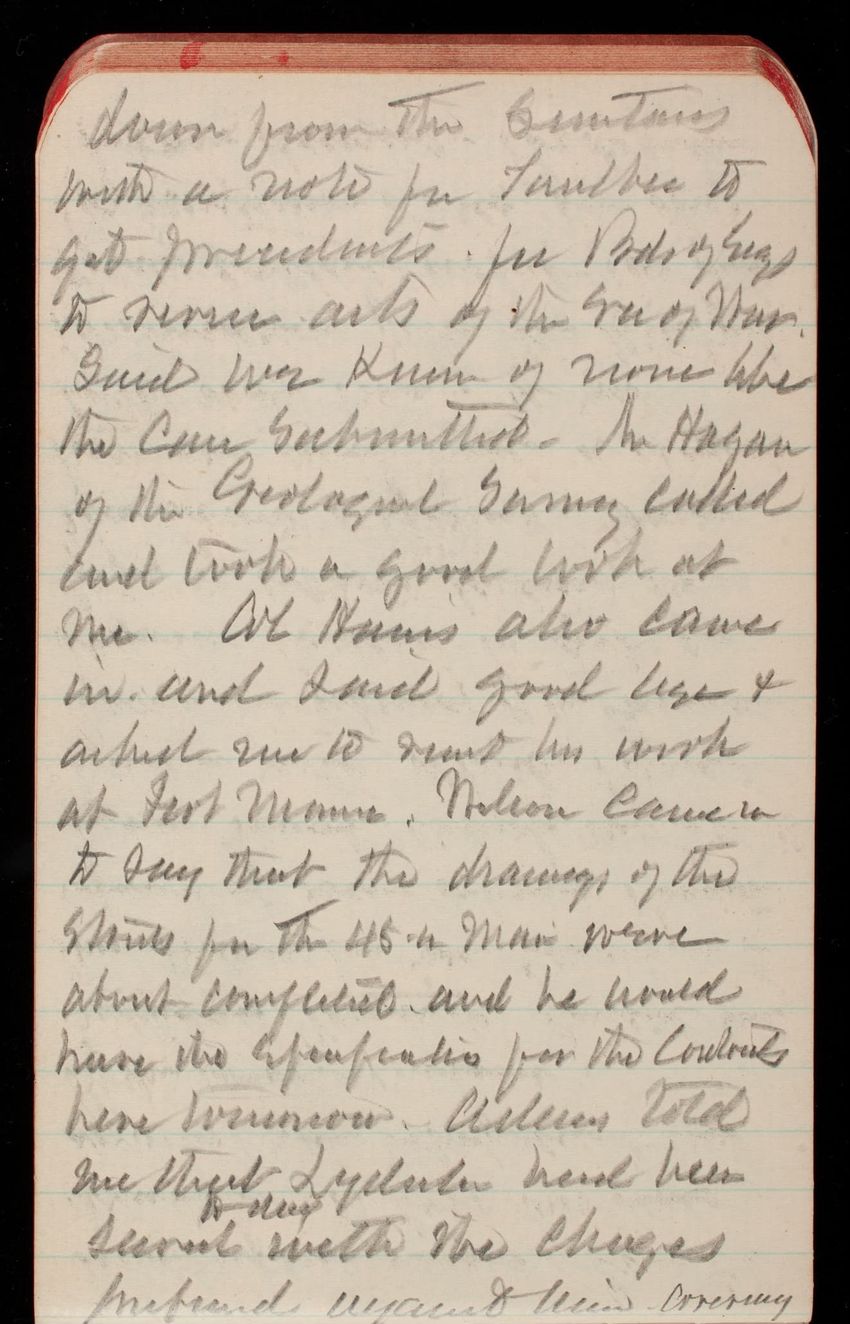 down from the
with a note for to
get precedents for Bds of Engs
to revise acts of the Sec of War.
Said were Knew of none like
the Case Submitted - Mr Hagan
of the Geological Survey called
and took a good look at
me. Col also came
in and said good bye &
asked me to visit his work
at Fort Monroe. Nelson came in
to say that the drawings of the
for the were
about completed and he would
have the for the
here tomorrow. Adams told
me that Lydecker had been
to day
served with the Charges
against him covering